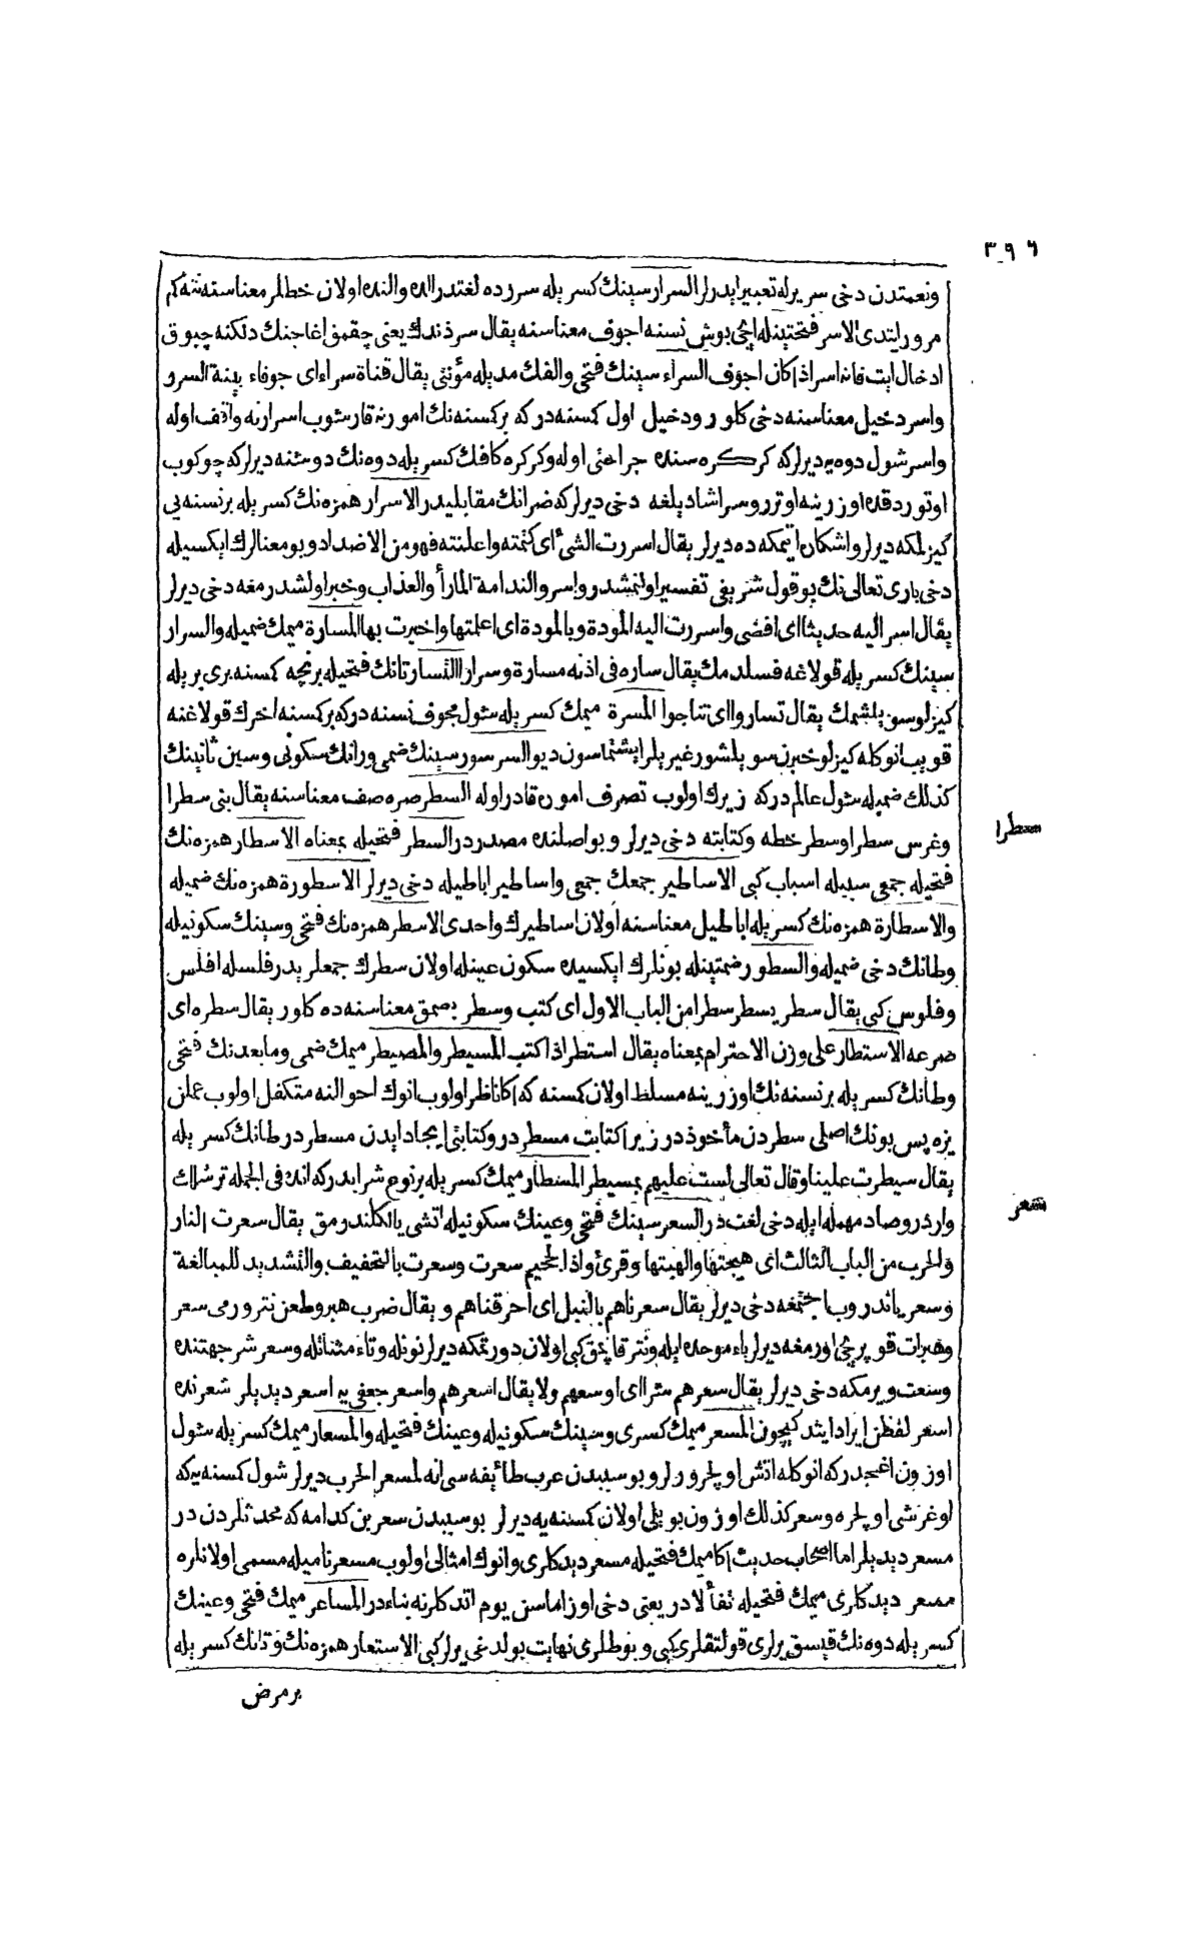 ٣٩٦
ونعمتدن دخی سریرله تعبیر ایدرلر السرار سینك كسریله سررده لغتدر الده والنده اولان خطلر معناسنه
مرور ایتدی الاسر فتحتینله ایچی بوش نسنه اجوف معناسنه یقال سر زندك یعنی چقمق اغاجنك دلكنه چبوق
ادخال ایت فانه اسر اذا كان اجوف السراء سینك فتحی والفك مدیله مؤنثی یقال قناة سراء ای جوفاء بینة السرر
واسر دخیل معناسنه دخی كلور ودخیل اول كمسنه در كه بر كسنه نك امورنه قارشوب اسرارنه واقف اوله
واسر شول دوه یه دیرلر كه كركره سنده جراحتی اوله وكركره كافك كسریله دوه نك دوشنه دیرلر كه چوكوب
اوتوردقده اوزرینه اوترر وسراشادیلغه دخی دیرلر كه ضرانك مقابلیدر الاسرار همزه نك كسریله بر نسنه یی
كیزلمكه دیرلر واشكاره ایتمكه ده دیرلر یقال اسررت الشئ ای كتمته واعلنته فهو من الاضداد وبو معنالرك ایكسیله
دخی باری تعالی نك بو قول شریفی تفسیر اولنمشدر واسروا الندامة لما رأوا العذاب وخبر اولشدرمغه دخی دیرلر
یقال اسر الیه حدیثا ای افضی واسررت الیه المودة وبالمودة ای اعلمتها واخبرت بها المسارة میمك ضمیله والسرار
سینك كسریله قولاغه فسلدمك یقال ساره فی اذنه مسارة وسرارا التسار تانك فتحیله برنچه كمسنه بری بریله
كیزلو سویلشمك یقال تساروا ای تناجوا المسرة میمك كسریله شول مجوف نسنه در كه بر كسنه اخرك قولاغنه
قویب انوكله كیزلو خبرن سویلشور غیریلر ایشتماسون دیو السرسور سینك ضمی ورانك سكونی وسین ثانینك
كذلك ضمیله شول عالمدر كه زیرك اولوب تصرف اموره قادر اوله السطر صره صف معناسنه یقال بنی سطرا
وغرس سطرا وسطر خطه وكتابته دخی دیرلر وبو اصلنده مصدردر السطر فتحیله بمعناه الاسطار همزه نك
فتحیله جمعی سببیله اسباب كبی الاساطیر جمعك جمعی واساطیر اباطیله دخی دیرلر الاسطورة همزه نك ضمیله
والاسطارة همزه نك كسریله اباطیل معناسنه اولان اساطیرك واحدی الاسطر همزه نك فتحی وسینك سكونیله
وطانك دخی ضمیله والسطور ضمتینله بونلرك ایكسیده سكون عینله اولان سطرك جمعلریدر فلسله افلس
وفلوس كبی یقال سطر یسطر سطرا من الباب الاول ای كتب وسطر یصمق معناسنه ده كلور یقال سطره ای
صرعه الاستطار علی وزن الاحترام بمعناه یقال استطر اذا اكتب المسیطر والمصیطر میمك ضمی وما بعدنك فتحی
وطانك كسریله بر نسنه نك اوزرینه مسلط اولان كمسنه كه اكا ناظر اولوب انوك احوالنه متكفل اولوب عملن
یزه پس بونك اصلی سطردن مأخوذدر زیرا كتابت مسطردر وكتابتی ایجاد ایدن مسطردر طانك كسریله
یقال سیطرت علینا وقال تعالی لست علیهم بمسیطر المسطار میمك كسریله بر نوع شرابدر كه انده فی الجمله ترشلك
واردر وصاد مهمله ایله دخی لغتدر السعر سینك فتحی وعینك سكونیله اتشی یالكلندرمق یقال سعرت النار
والحرب من الباب الثالث ای هیجتها والهبتها وقرئ واذا الجحیم سعرت وسعرت بالتخفیف والتشدید للمبالغة
وسعر یاندروب اجتمغه دخی دیرلر یقال سعرناهم بالنبل ای احرقناهم ویقال ضرب هبر وطعن نتر ورمی سعر
وهبرات قوپرچی اورمغه دیرلر باء موحده ایله ونتر قاپمق كبی اولان دورتمكه دیرلر نونله وتاء مثناتله وسعر شر جهتنده
وسعت ویرمكه دخی دیرلر یقال سعرهم شرا ای اوسعهم ولا یقال اسعرهم واسعر جعفی یه اسعر دیدیلر شعرنده
اسعر لفظن ایراد ایتدكیچون المسعر میمك كسری وسینك سكونیله وعینك فتحیله والمسعار میمك كسریله شول
اوزون اغجدر كه انوكله اتش اویلرورلر وبو سببدن عرب طائفه سی انه لمسعر الحرب دیرلر شول كسنه یه كه
اوغرشی اویلره وسعر كذلك اوزون بویلی اولان كمسنه یه دیرلر بو سببدن سعر بن كدامه كه محدثلردندر
مسعر دیدیلر اما اصحاب حدیث اكا میمك فتحیله مسعر دیدكلری وانوك امثالی اولوب مسعر نامیله مسمی اولانلره
مسعر دیدكلری میمك فتحیله تفألادر یعنی دخی اوزاماسن یوم اتدكلرنه بناءدر المساعر میمك فتحی وعینك
كسریله دوه نك قیسق یرلری قولتقلری كبی وبوطلری نهایت بولدغی یرلر كبی الاستعار همزه نك وتانك كسریله
سطرا
سعر
برمرض